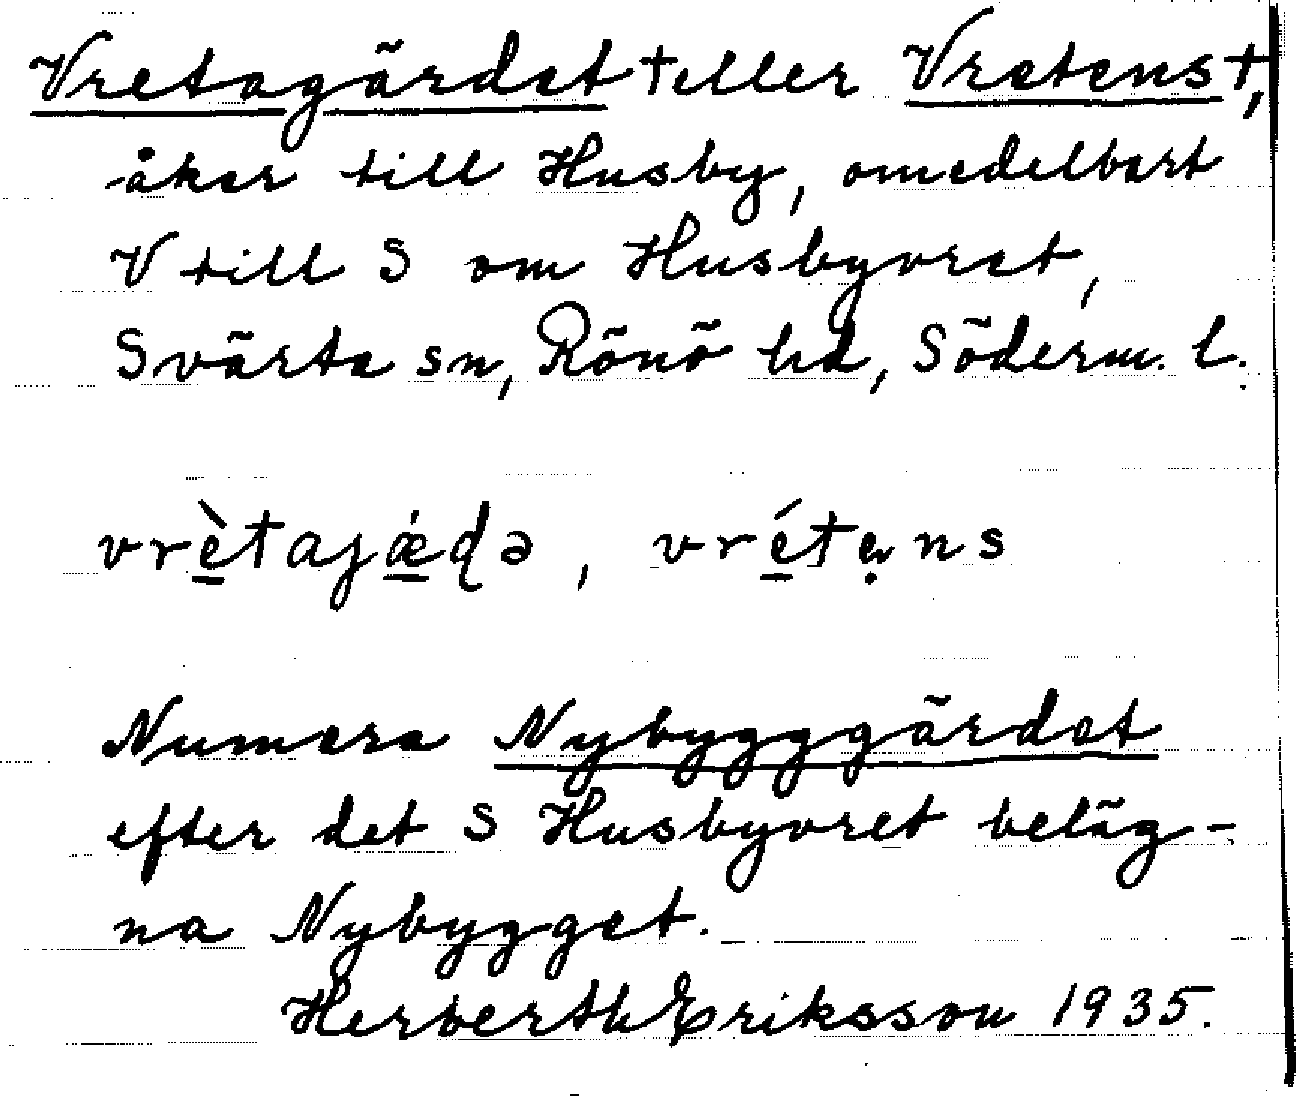 Vretagärdet † eller Vretens †,
åker till Husby, omedelbart
V till S om Husbyvret,
Svärta sn, Rönö hd, Söderm. l.
vrètajǽɖə, vréte̩ns
Numera Nybygggärdet
efter det S Husbyvret beläg-
na Nybygget.
Herberth Eriksson 1935.